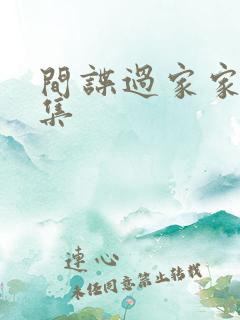 間諜過家家
集
連心
未經同意禁止轉載